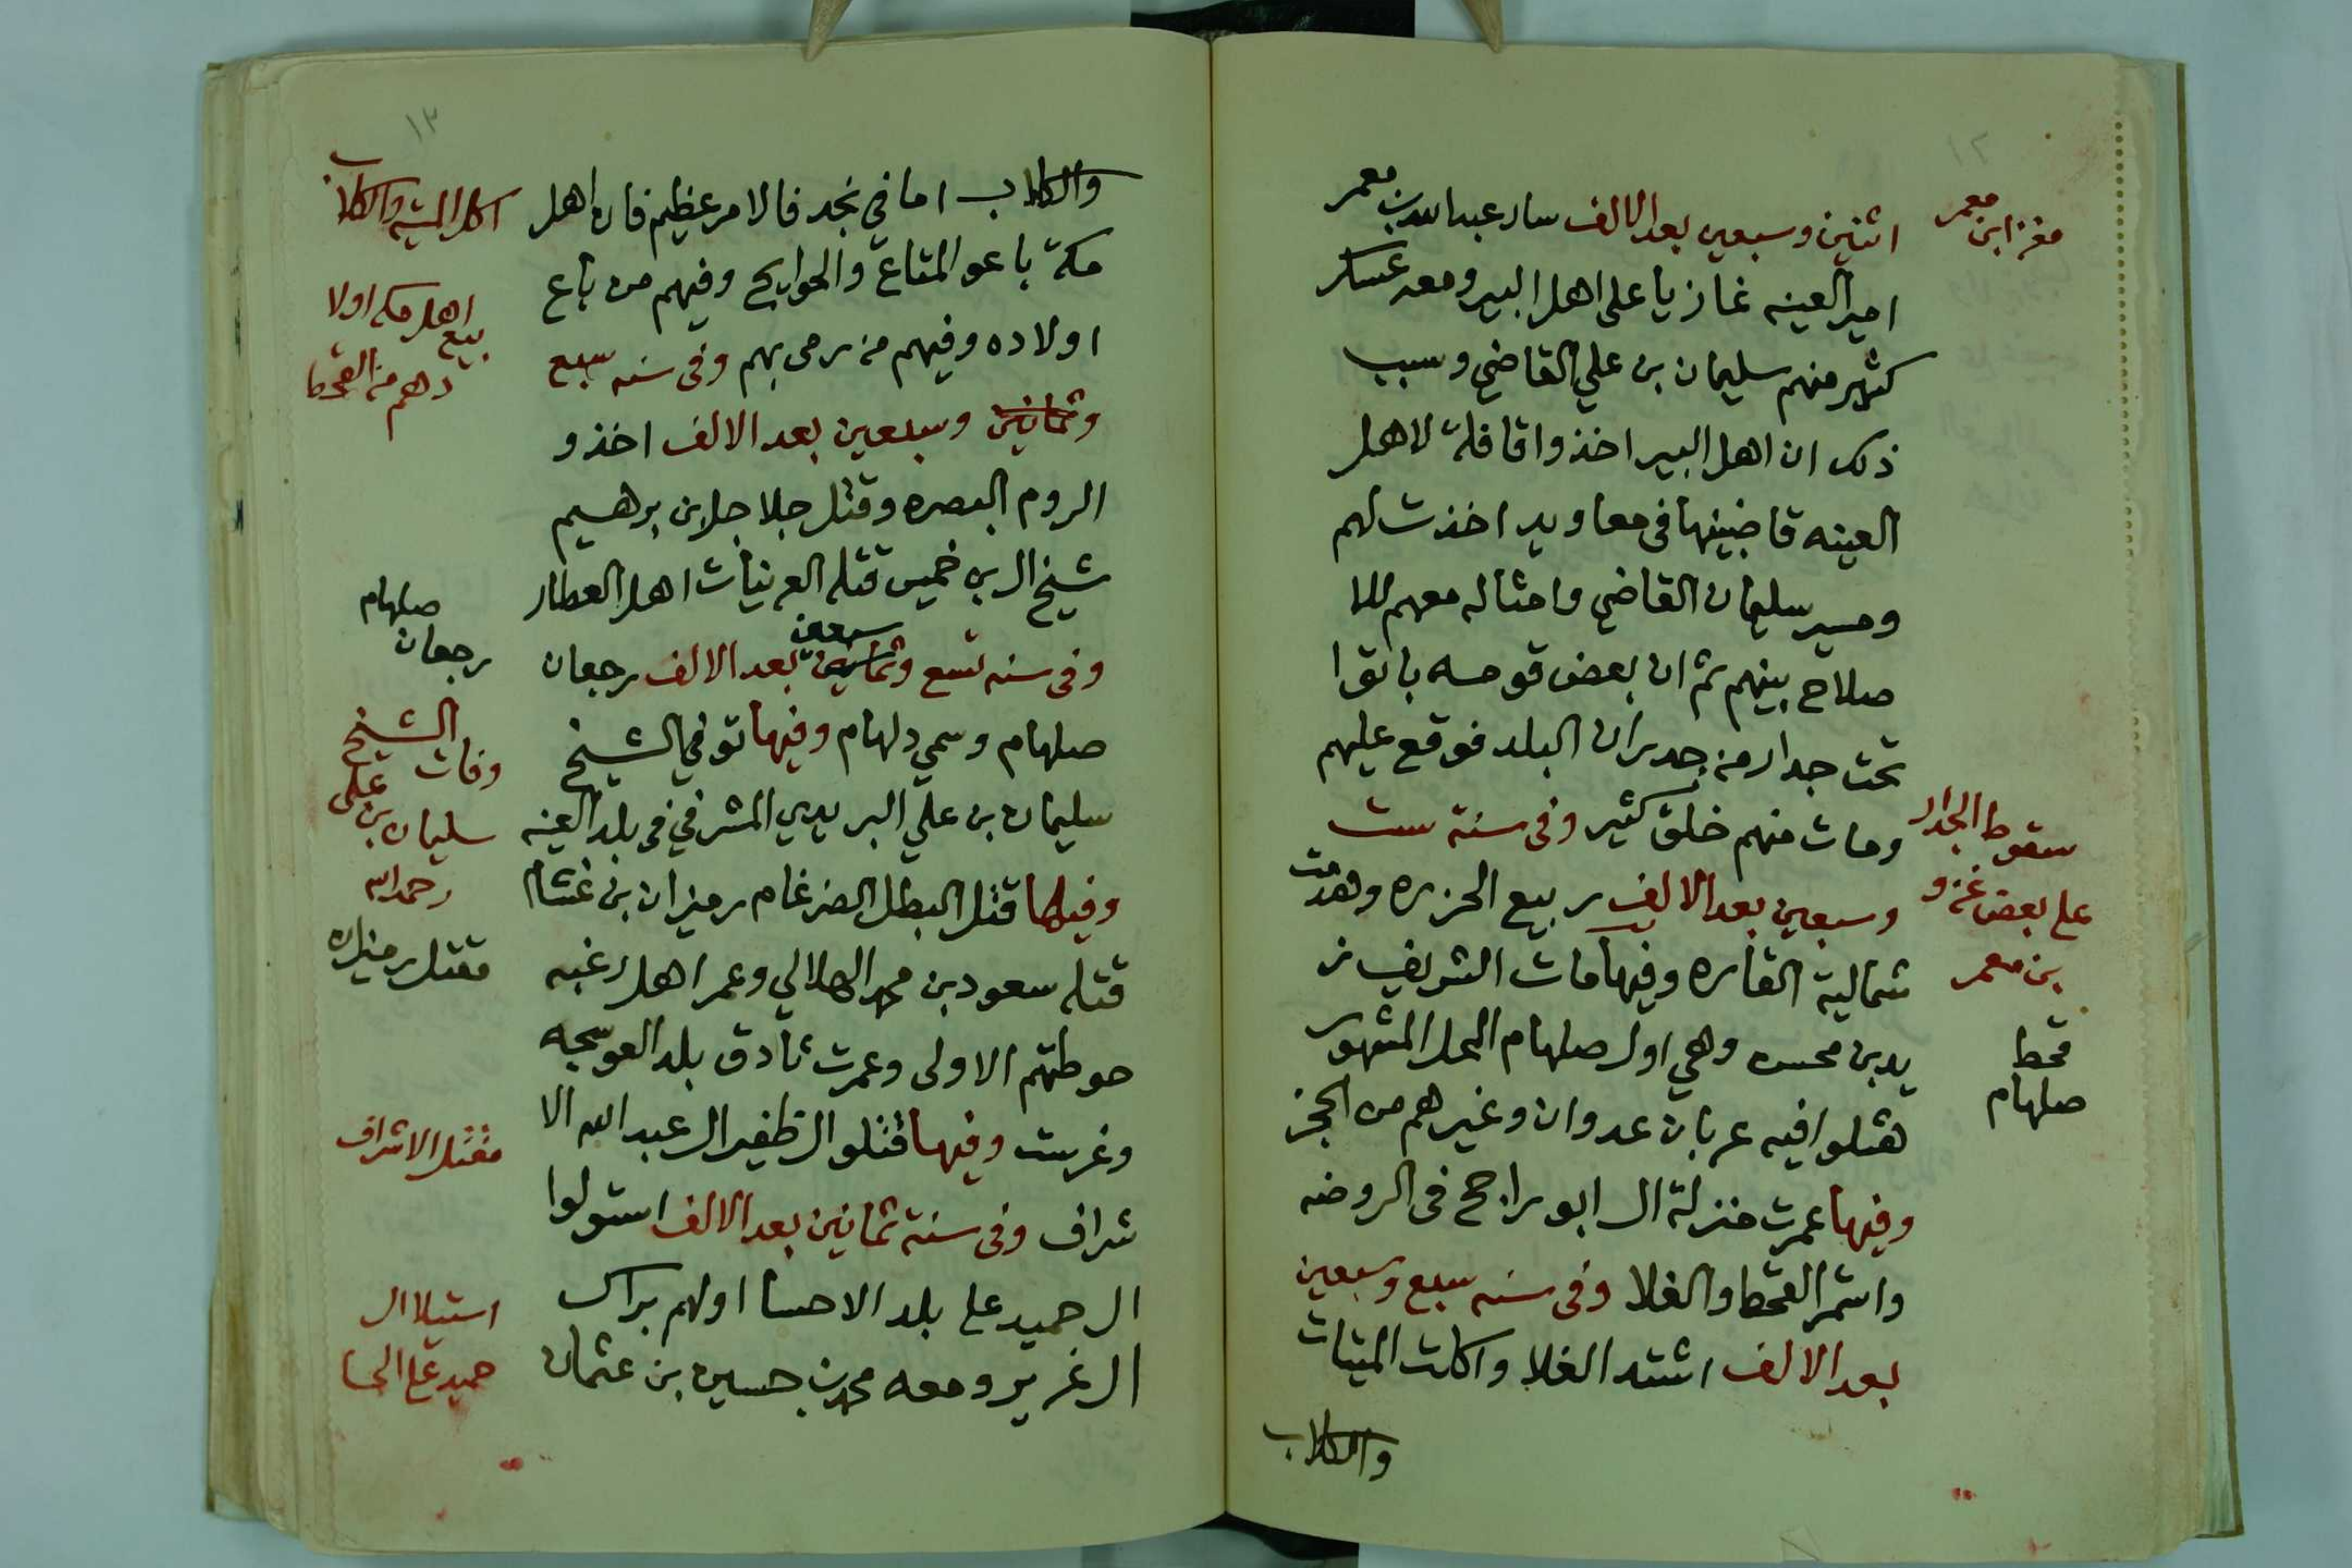 ١٢
مغزا ابن معمر
اثنين وسبعين بعد الالف سار عبدالله بن معمر
امير العينه غازيا على اهل البير ومعه عسكر
كثير منهم سليمان بن علي القاضي وسبب
ذلك ان اهل البير اخذوا قافلة لاهل
العينه قاضبينها في معاويد اخذت لهم
ومسير سليمان القاضي وامثاله معهم للا
صلاح بينهم ثم ان بعض قومه باتوا
تحت جدار من جدران البلد فوقع عليهم
ومات منهم خلق كثير وفي سنة ست
وسبعين بعد الالف ربيع الحزره وهدمت
شمالية القاره وفيها مات الشريف ز
يد بن محسن وهي اول صلهام المحل المشهور
هتلوا فيه عربان عدوان وغيرهم من الحجز
وفيها عمرت منزلة ال ابو راجح في الروضه
واستمر القحط والغلا وفي سنه سبع وسبعين
بعد الالف اشتد الغلا واكلت الميتات
والكلاب
سقوط الجدار
على بعض غزو
بن معمر
قحط
صلهام
١٣
والكلاب اما في نجد فالامر عظيم فان اهل
مكة باعو المتاع والحوايج وفيهم من باع
اولاده وفيهم من رمى بهم وفي سنه سبع
وثمانين وسبعين بعد الالف اخذو
الروم البصره وقتل جلاجل بن برهسيم
شيخ ال بن خميس قتله العرينات اهل العطار
وفي سنه تسع وثمانين سبعين بعد الالف رجعان
صلهام وسمي دلهام وفيها توفي الشيخ
سليمان بن علي البريدي المشرفي في بلد العينه
وفيها قتل البطل الضرغام رميزان بن غشام
قتله سعود بن محمد الهلالي وعمر اهل رغبه
حوطتهم الاولى وعمرت ثادق بلد العوسجه
وغرست وفيها قتلو الظفير ال عبدالله الا
شراف وفي سنة ثمانين بعد الالف استولوا
ال حميد على بلد الاحسا اولهم براك
ال غرير ومعه محمد بن حسين بن عثمان
اكل الميته والكلاب
بيع اهل مكه اولا
دهم من القحط
صلهام
رجعان
وفات الشيخ
سليمان بن علي
رحمه الله
مقتل رميزان
مقتل الاشراف
استيلا ال
حميد على الحسا